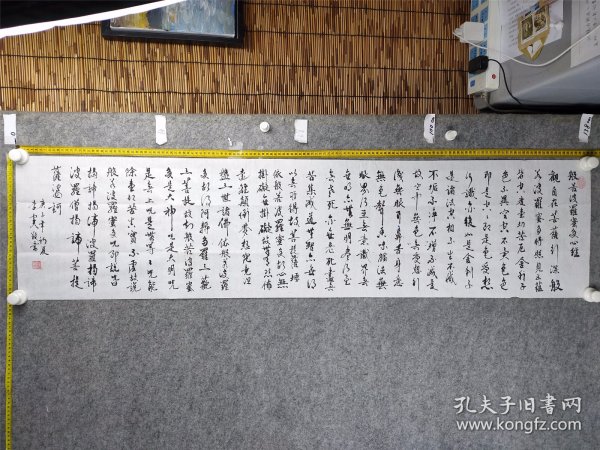 般若波羅蜜多心經
觀自在菩薩行深般
若波羅蜜多時照見五蘊
皆空度一切苦厄舍利子
色不異空空不異色色
即是空空即是色受想
行識亦復如是舍利子
是諸法空相不生不滅
不垢不淨不增不減是
故空中無色無受想行
識無眼耳鼻舌身意
無色聲香味觸法無
眼界乃至無意識界無
無明亦無無明盡乃至
無老死亦無老死盡無
苦集滅道無智亦無得
以無所得故菩提薩埵
依般若波羅蜜多故心無
掛礙無掛礙故無有恐怖
遠離顛倒夢想究竟涅
槃三世諸佛依般若波羅
蜜多故得阿耨多羅三藐
三菩提故知般若波羅蜜
多是大神咒是大明咒
是無上咒是無等等咒能
除一切苦真實不虛故說
般若波羅蜜多咒即說咒曰
揭諦揭諦波羅揭諦
波羅僧揭諦菩提
薩婆訶
孔夫子旧书网
www.kongfz.com